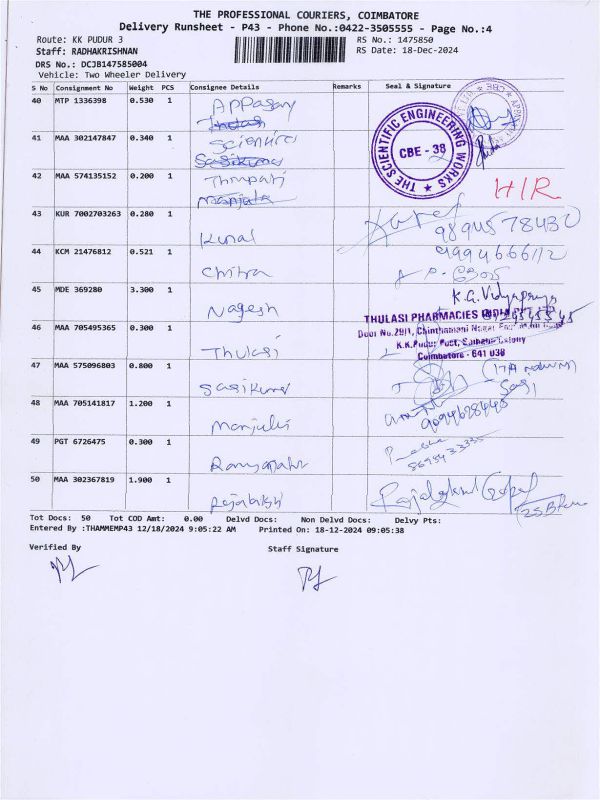 THE PROFESSIONAL COURIERS, COIMBATORE
Delivery Runsheet - P43 - Phone No.:0422-3505555 - Page No.:4
Route: KK PUDUR 3
RS No.: 1475850
Staff: RADHAKRISHNAN
RS Date: 18-Dec-2024
DRS No.: DCJB147585004
Vehicle: Two Wheeler Delivery
S No Consignment No Weight PCS Consignee Details Remarks Seal & Signature
40 MTP 1336398 0.530 1 Appasamy
Thulasi
41 MAA 302147847 0.340 1 Scientific
Sasikumar
THE SCIENTIFIC ENGINEERING WORKS
CBE - 38
42 MAA 574135152 0.200 1 Thirupati
Manjula
H/R
43 KUR 7002703263 0.280 1 Kunal
9894578430
44 KCM 21476812 0.521 1 Chitra
9994666112
45 MDE 369280 3.300 1 Nagesh
K.G. Vidyapraya
46 MAA 705495365 0.300 1 Thulasi
THULASI PHARMACIES INDIA
K.K.Pudur Post, Saibaba Colony
Coimbatore - 641 038
47 MAA 575096803 0.800 1 Sasikumar
Sasi
48 MAA 705141817 1.200 1 Manjula
9094628445
49 PGT 6726475 0.300 1
50 MAA 302367819 1.900 1 Rajalakshmi
Tot Docs: 50 Tot COD Amt: 0.00 Delvd Docs: Non Delvd Docs: Delvy Pts:
Entered By :THAMMEMP43 12/18/2024 9:05:22 AM Printed On: 18-12-2024 09:05:38
Verified By
Staff Signature